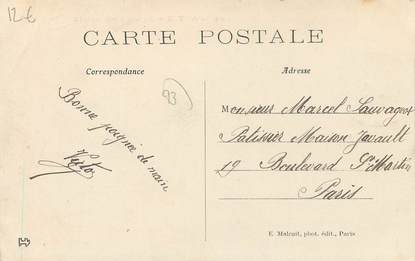 12€
CARTE POSTALE
Correspondance
Adresse
93
Bonne poignée de main
Monsieur Marcel Sauvaget
Patissier Maison Javault
19 Boulevard St Martin
Paris
E. Malcuit, phot. édit., Paris